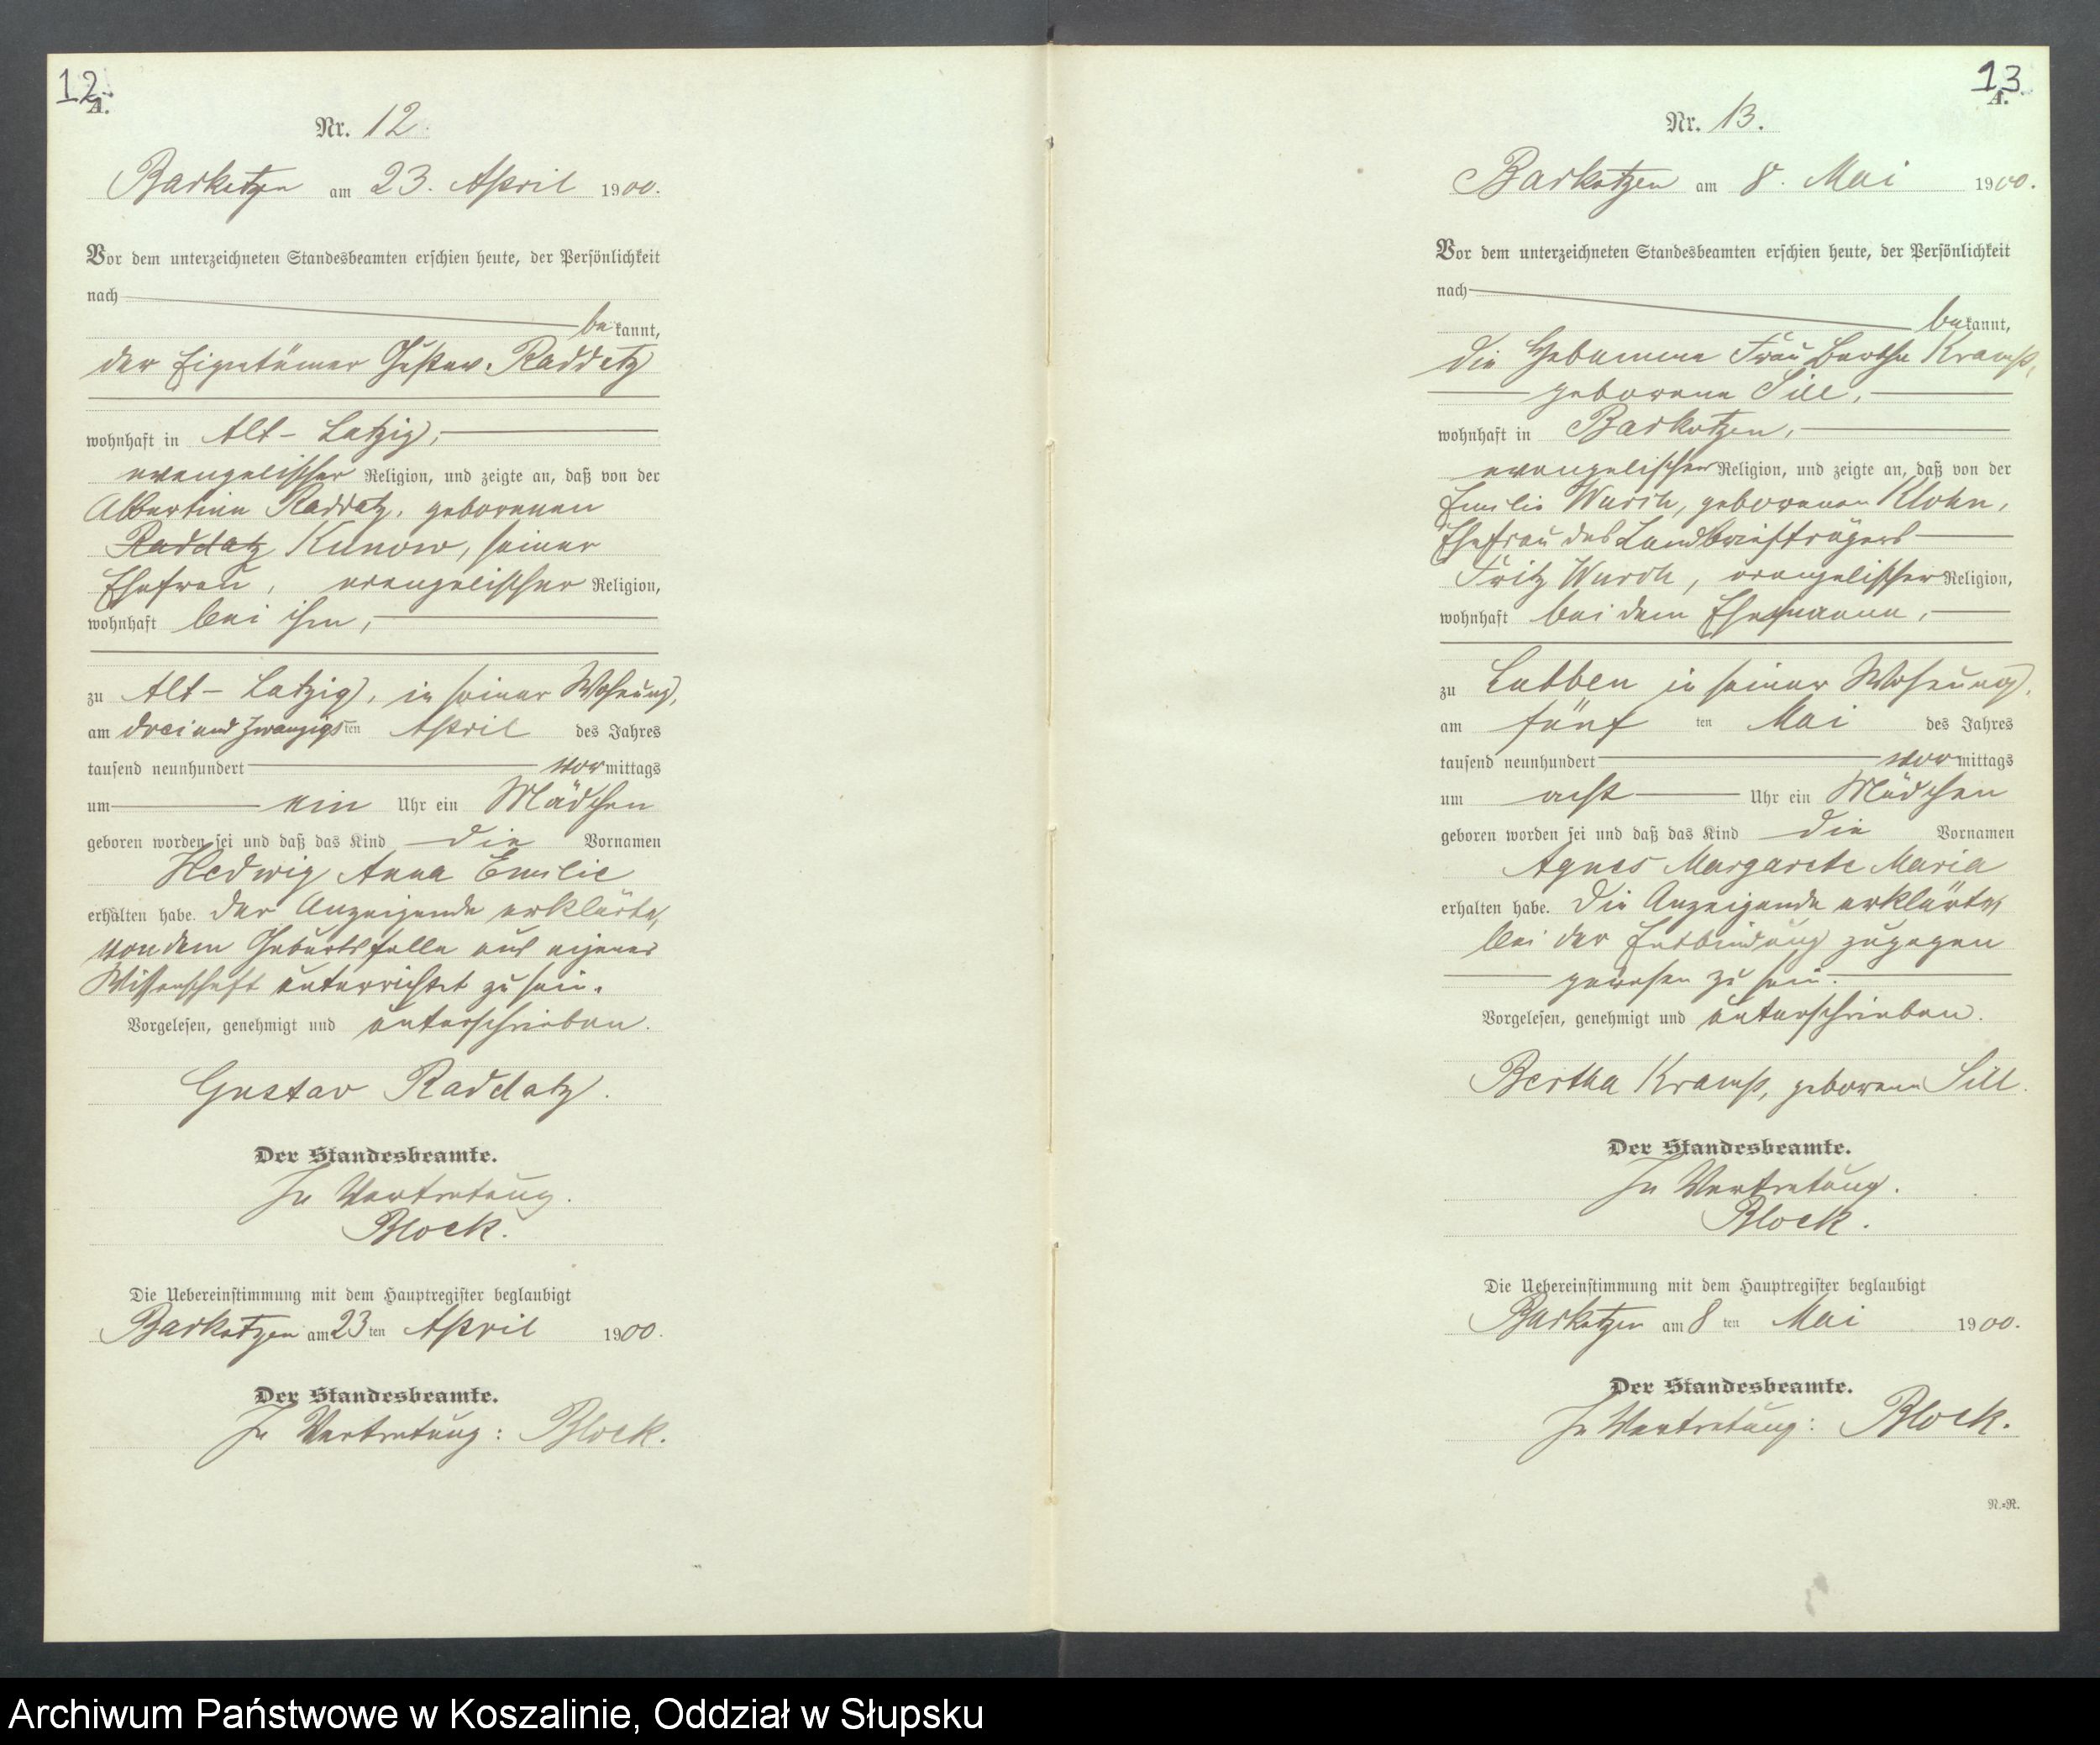 12.
A.
Nr. 12.
Barkotzen am 23. April 1900.
Vor dem unterzeichneten Standesbeamten erschien heute, der Persönlichkeit
nach
bekannt,
der Eigentümer Gustav Raddatz
wohnhaft in Alt-Latzig,
evangelischer Religion, und zeigte an, daß von der
Albertine Raddatz, geborenen
Raddatz Kunow, seiner
Ehefrau, evangelischer Religion,
wohnhaft bei ihm,
zu Alt-Latzig, in seiner Wohnung,
am drei und zwanzigsten April des Jahres
tausend neunhundert vormittags
um ein Uhr ein Mädchen
geboren worden sei und daß das Kind die Vornamen
Hedwig Anna Emilie
erhalten habe. Der Anzeigende erklärte,
von dem Geburtsfalle aus eigener
Wissenschaft unterrichtet zu sein.
Vorgelesen, genehmigt und unterschrieben.
Gustav Raddatz.
Der Standesbeamte.
In Vertretung.
Block.
Die Uebereinstimmung mit dem Hauptregister beglaubigt
Barkotzen am 23ten April 1900.
Der Standesbeamte.
In Vertretung: Block.
13.
A.
Nr. 13.
Barkotzen am 8. Mai 1900.
Vor dem unterzeichneten Standesbeamten erschien heute, der Persönlichkeit
nach
bekannt,
die Hebamme Frau Bertha Kramp,
geborene Sill,
wohnhaft in Barkotzen,
evangelischer Religion, und zeigte an, daß von der
Emilie Wursch, geborenen Klohn,
Ehefrau des Landbriefträgers
Fritz Wursch, evangelischer Religion,
wohnhaft bei dem Ehemanne,
zu Lubben in seiner Wohnung,
am fünf ten Mai des Jahres
tausend neunhundert vormittags
um acht Uhr ein Mädchen
geboren worden sei und daß das Kind die Vornamen
Agnes Margarete Maria
erhalten habe. Die Anzeigende erklärte,
bei der Entbindung zugegen
gewesen zu sein.
Vorgelesen, genehmigt und unterschrieben.
Bertha Kramp, geborene Sill.
Der Standesbeamte.
In Vertretung.
Block.
Die Uebereinstimmung mit dem Hauptregister beglaubigt
Barkotzen am 8 ten Mai 1900.
Der Standesbeamte.
In Vertretung: Block.
N.=R.
Archiwum Państwowe w Koszalinie, Oddział w Słupsku